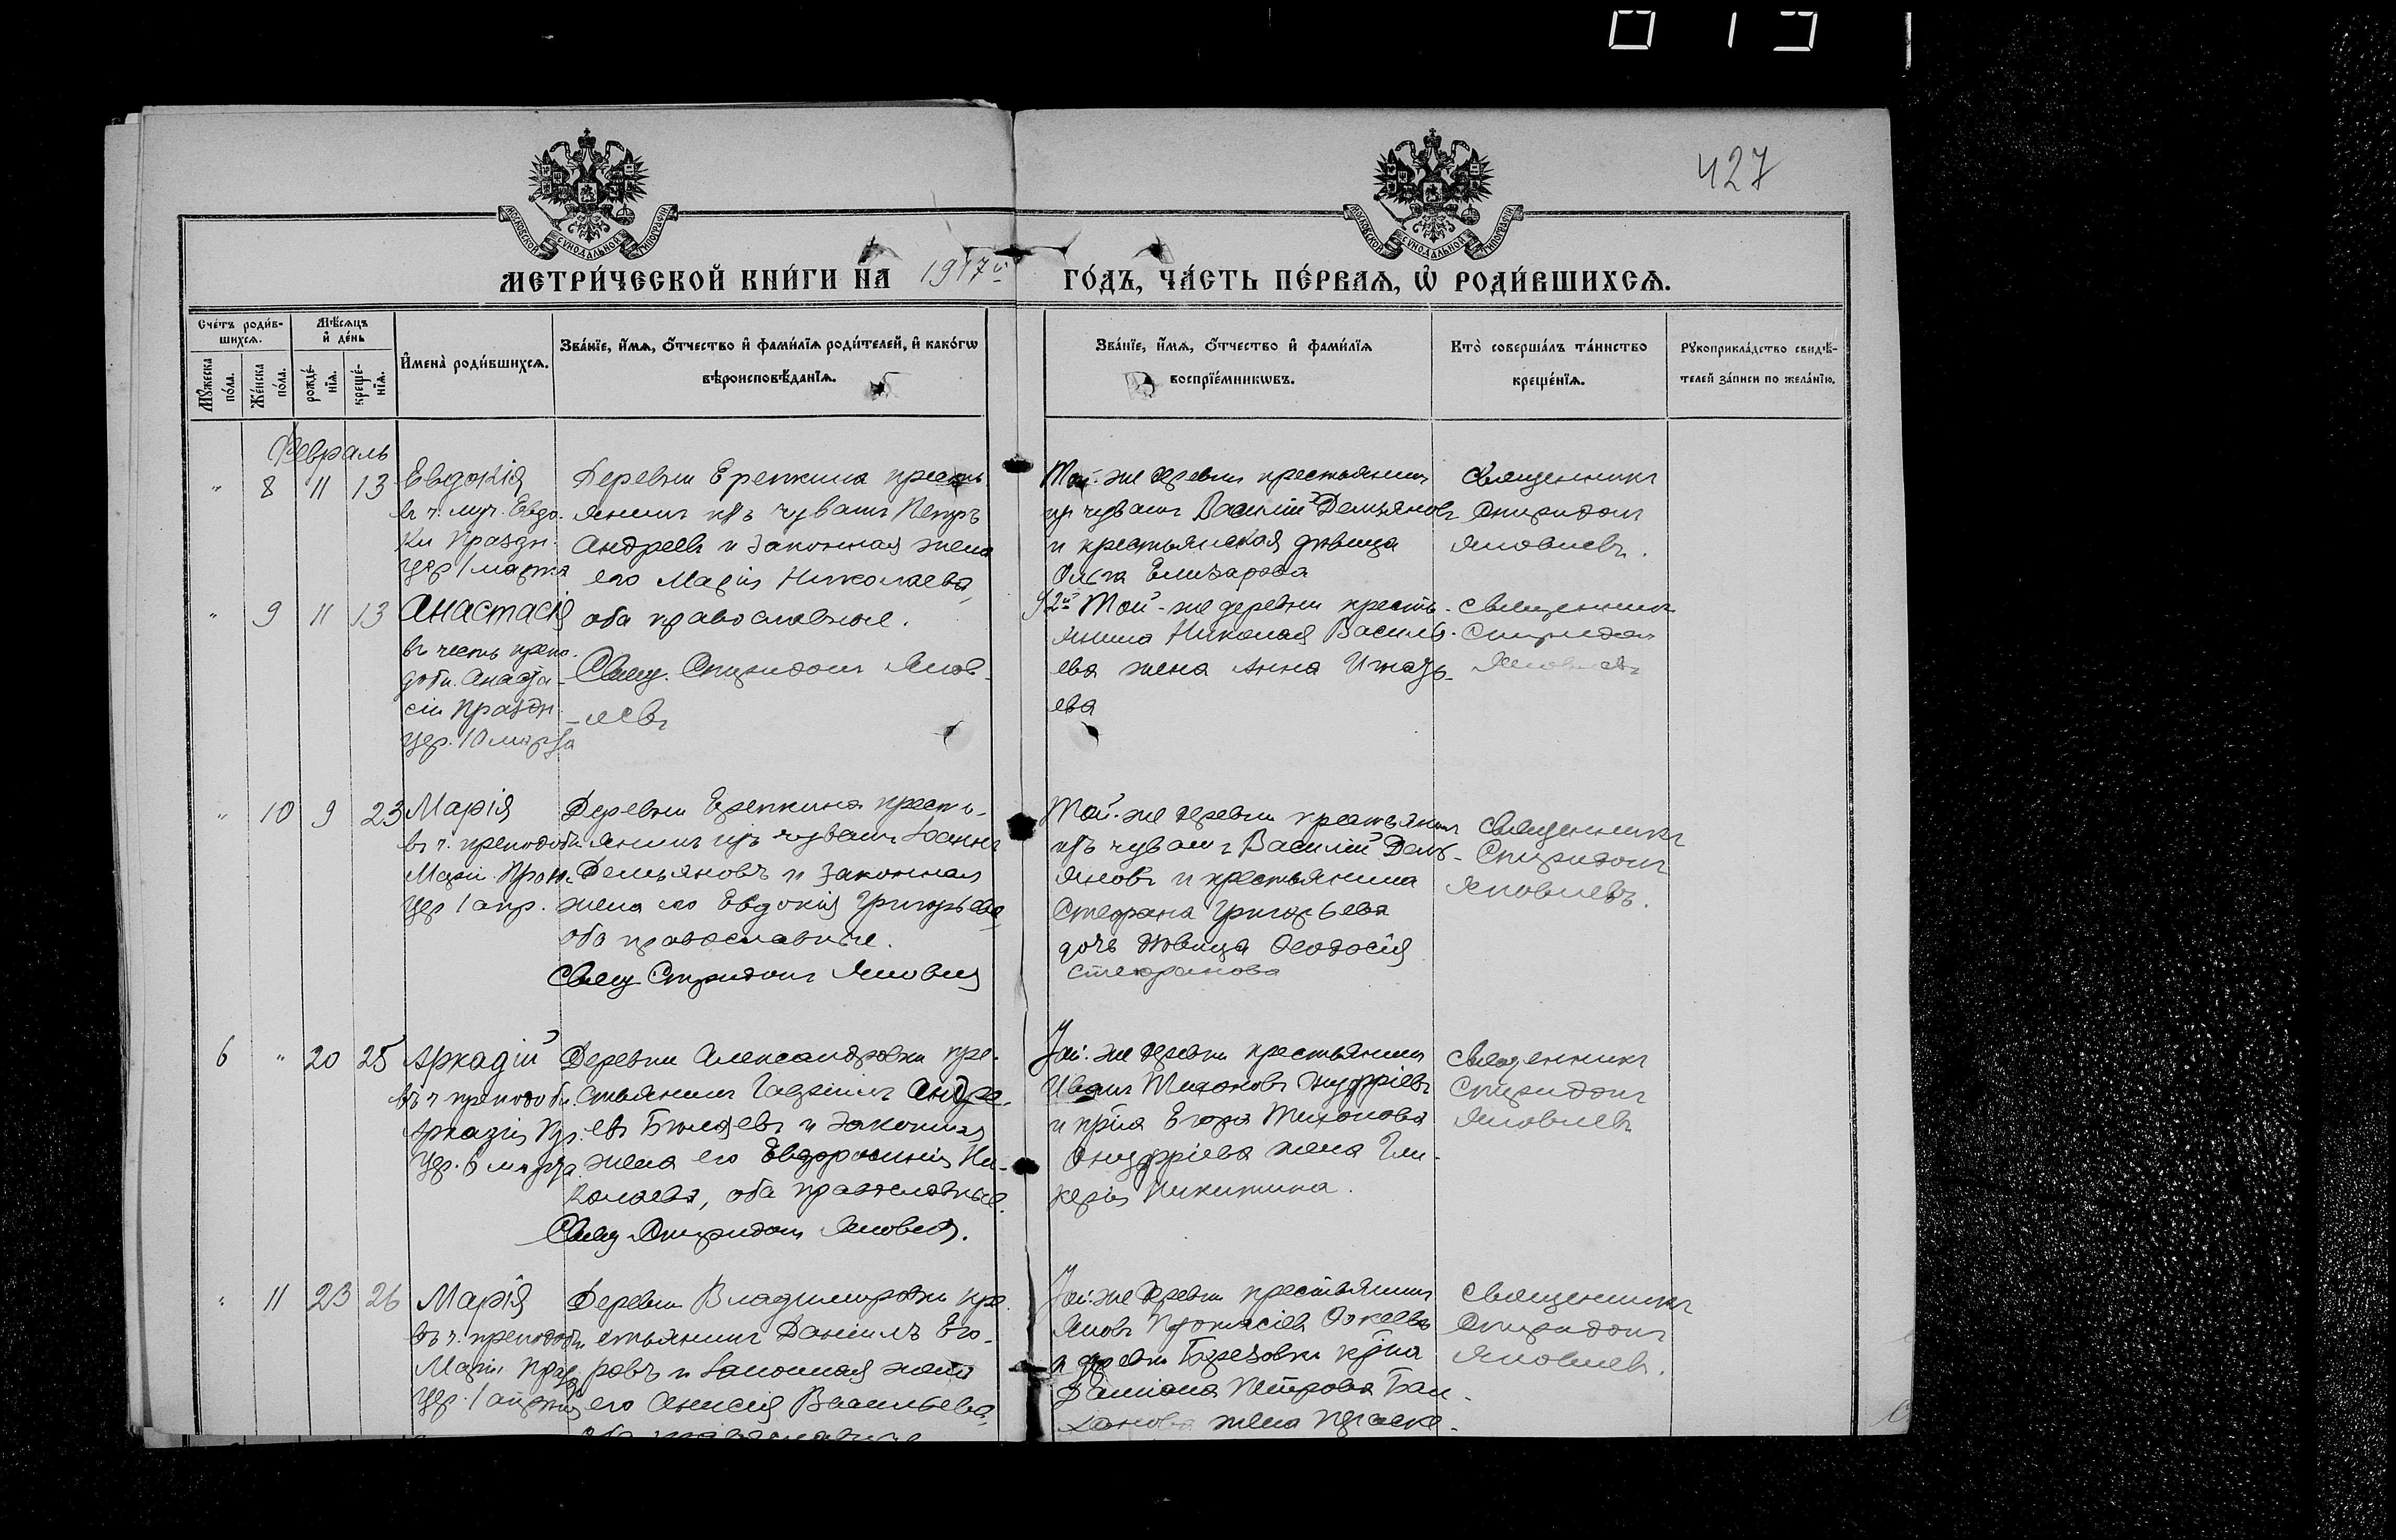 427
МОСКОВСКОЙ СѴНОДАЛЬНОЙ ТИПОГРАФІИ
МОСКОВСКОЙ СѴНОДАЛЬНОЙ ТИПОГРАФІИ
МЕТРИ́ЧЕСКОЙ КНИ́ГИ НА 1917й ГО́ДЪ, ЧА́СТЬ ПЕ́РВАѦ, Ѡ҆ РОДИ́ВШИХСѦ.
Сче́тъ роди́в-
шихсѧ.
Мѣ́сѧцъ
и҆ де́нь
Мꙋ́жеска
по́ла.
Же́нска
по́ла.
рожде́-
нїѧ.
креще́-
нїѧ.
И҆мена̀ роди́вшихсѧ.
Зва́нїе, и҆́мѧ, ѻ҆́тчество и҆ фами́лїѧ роди́телей, и҆ како́гѡ
вѣроисповѣ́данїѧ.
Зва́нїе, и҆́мѧ, ѻ҆́тчество и҆ фами́лїѧ
воспрїе́мникѡвъ.
Кто̀ соверша́лъ та́инство
креще́нїѧ.
Рꙋкоприкла́дство свидѣ́-
телей за́писи по жела́нїю.
Февраль
" 8 11 13
Евдокія
въ ч. муч. Евдо-
кіи Праздн.
цер 1 марта
Деревни Ерепкина кресть
янинъ изъ чувашъ Петръ
Андреевъ и законная жена
его Марія Николаева,
оба православные.
Свящ. Спиридонъ Яков-
-левъ
Той-же деревни крестьянинъ
из чувашъ Василій Демьяновъ
и крестьянская дѣвица
Ольга Елизарова
Священникъ
Спиридонъ
Яковлевъ.
" 9 11 13
Анастасія
въ честь препо-
добн. Анаста-
сіи Праздн
цер. 10 марта
У 2й Той-же деревни кресть-
янина Николая Василь-
ева жена Анна Игнать-
ева
Священникъ
Спиридонъ
Яковлевъ
" 10 9 23
Марія
въ ч. преподобн.
Маріи Празн.
цер 1 апр.
Деревни Ерепкина кресть-
янинъ изъ чувашъ Іоаннъ
Демьяновъ и законная
жена его Евдокія Григорьева,
оба православные.
Свящ Спиридонъ Яковлевъ
Той-же деревни крестьянинъ
изъ чувашъ Василій Демь-
яновъ и крестьянина
Стефана Григорьева
дочь дѣвица Ѳеодосія
Стефанова
Священникъ
Спиридонъ
Яковлевъ.
6 " 20 25
Аркадій
въ ч преподобн.
Аркадія Пр.
цер. 6 марта
Деревни Александровки кре-
стьянинъ Гавріилъ Андре-
евъ Бѣляевъ и законная
жена его Евфросинія Ни-
колаева, оба православные.
Свящ Спиридонъ Яковлевъ.
Той-же деревни крестьянинъ
Иванъ Тихоновъ Онуфріевъ
и кр҃на Егора Тихонова
Онуфріева жена Гли-
керія Никитина.
Священникъ
Спиридонъ
Яковлевъ
" 11 23 26
Марія
въ ч. преподобн.
Маріи Празд
цер. 1 апрѣля
Деревни Владимировки кре
стьянинъ Даніилъ Его-
ровъ и законная жена
его Анисія Васильева,
оба православные
Той-же деревни крестьянинъ
Яковъ Протасіевъ
и деревни Березовки кр҃на
Даміана Петрова
жена Параске-
Священникъ
Спиридонъ
Яковлевъ.